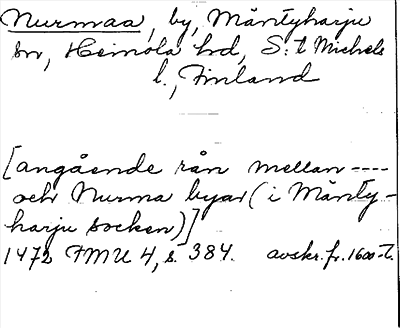 Nurmaa, by, Mäntyharju
sn, Heinola hd, S:t Michels
l., Finland
[angående rån mellan ----
och Nurma byar (i Mänty-
harju socken)]
1472 FMU 4, s. 384. avskr. fr. 1600-t.